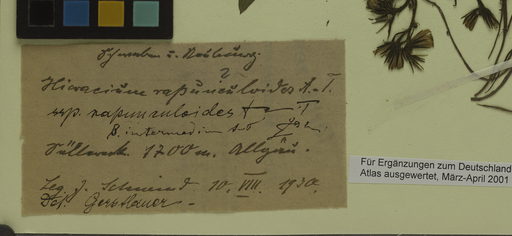 Schwaben u. Neuburg.
?
Hieracium rapunculoides A.-T.
ssp. rapunculoides A-T
β. intermedium A-T
1700 m. Allgäu.
Leg. J. Schmid 10. VIII. 1930.
Det. Gerstlauer -
Für Ergänzungen zum Deutschland
Atlas ausgewertet, März-April 2001